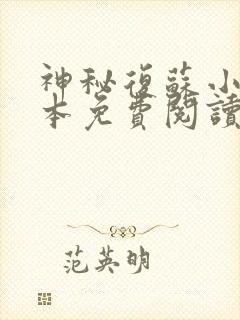 神秘復蘇小
本免費閱讀
范英明